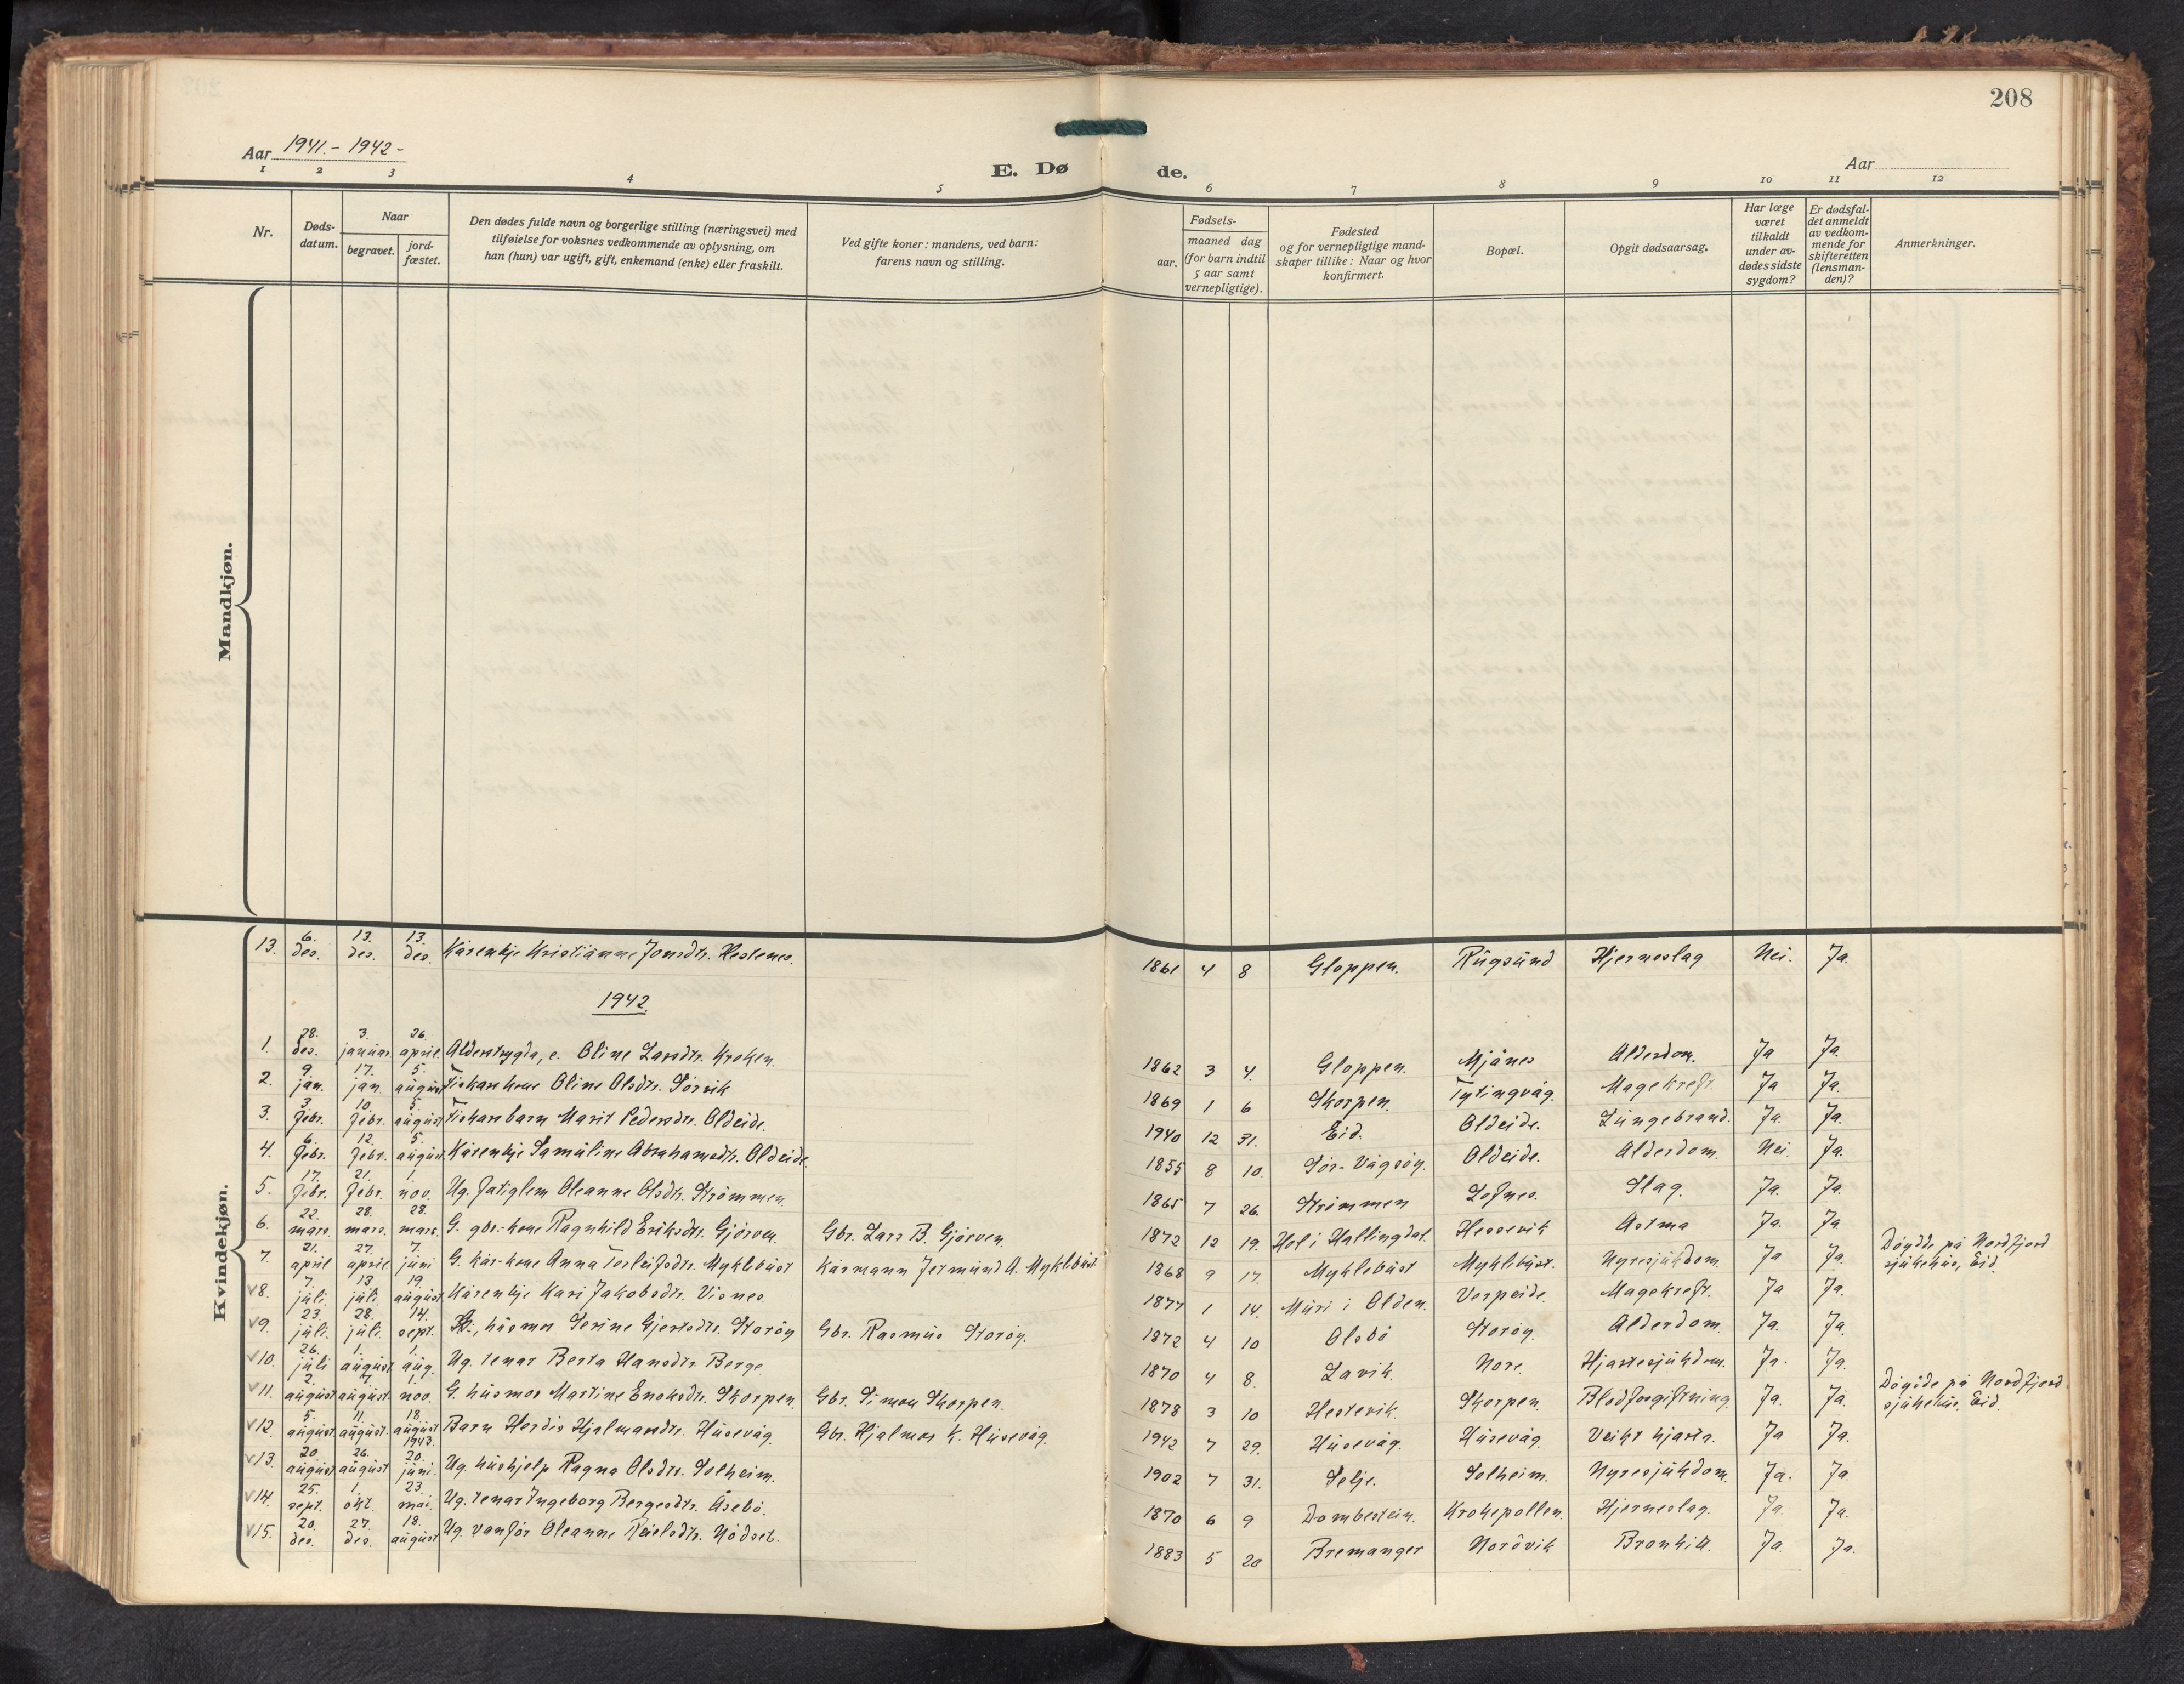 208
Aar 1941.- 1942-
E. Dø
de.
Aar
1 2 3 4 5 6 7 8 9 10 11 12
Nr.
Døds-datum.
Naar
begravet.
jord-fæstet.
Den dødes fulde navn og borgerlige stilling (næringsvei) med
tilføielse for voksnes vedkommende av oplysning, om
han (hun) var ugift, gift, enkemand (enke) eller fraskilt.
Ved gifte koner: mandens, ved barn:
farens navn og stilling.
Fødsels-
aar.
maaned dag
(for barn indtil
5 aar samt
vernepligtige).
Fødested
og for vernepligtige mand-
skaper tillike: Naar og hvor
konfirmert.
Bopæl.
Opgit dødsaarsag.
Har læge
været
tilkaldt
under av-
dødes sidste
sygdom?
Er dødsfal-
det anmeldt
av vedkom-
mende for
skifteretten
(lensman-
den)?
Anmerkninger.
Mandkjøn.
Kvindekjøn.
13. 6. des. 13. des. 13. des. Kårenkje Kristianne Jonsdtr. Hestenes. 1861 4 8 Gloppen. Rugsund Hjerneslag Nei. Ja.
1942.
1. 28. des. 3. januar. 26. april Alderstrygda, e. Oline Larsdtr. Kroken. 1862 3 4. Gloppen. Mjånes Alderdom. Ja Ja.
2. 9. jan. 17. jan. 5. august Fiskarkone Oline Olsdtr. Sørvik 1869 1 6 Skorpen. Tytingvåg. Magekreft. Ja Ja.
3. 3. febr. 10. febr. 5. august Fiskarbarn Marit Pedersdtr. Oldeide. 1940 12 31. Eid. Oldeide. Lungebrand. Ja. Ja.
4. 6. febr. 12. febr. 5. august Kårenkje Samuline Abrahamsdtr. Oldeide 1855 8 10. Sør-Vågsøy. Oldeide. Alderdom. Nei. Ja.
5. 17. febr. 21. febr. 1. nov. Ug. fatiglem Oleanne Olsdtr. Strømmen. 1865 7 26. Strømmen Lefnes. Slag. Ja. Ja.
6. 22. mars. 28. mars. 28. mars. G. gbr.-kone Ragnhild Eriksdtr. Gjørven. Gbr. Lars B. Gjørven. 1872 12 19. Hol i Hallingdal. Hessevik Astma Ja. Ja
7. 21. april 27. april 7. juni G. kår-kone Anna Torleifsdtr. Myklebust Kårmann Jermund A. Myklebust 1868 9 17. Myklebust Myklebust. Nyresjukdom. Ja Ja. Døydde på Nordfjord sjukehus, Eid.
v8. 7. juli. 13. juli. 19. august. Kårenkje Kari Jakobsdtr. Visnes. 1877 1 14. Muri i Olden. Verpeide. Magekreft. Ja Ja.
v9. 23. juli. 28. juli. 14. sept. husmor Serine Gjertsdtr. Storøy Gbr. Rasmus Storøy. 1872 4 10 Olsbø Storøy. Alderdom. Ja. Ja.
v10. 26. juli 1. august 1. aug. Ug. tenar Berta Hansdtr. Berge. 1870 4 8. Lavik. Nore. Hjartesjukdom. Ja. Ja.
v11. 2. august 7. august. 1. nov. G. husmor Martine Enoksdtr. Skorpen. Gbr. Simon Skorpen. 1878 3 10 Hestevik. Skorpen. Blodforgiftning. Ja. Ja. Døydde på Nordfjord sjukehus, Eid.
v12. 5. august 11. august. 18. august Barn Herdis Hjalmarsdtr. Husevåg. Gbr. Hjalmar K. Husevåg. 1942 7 29. Husevåg. Husevåg. Veikt hjarta. Ja Ja.
v13. 20. august 26. august 1943. 20. juni. Ug. hushjelp Ragna Olsdtr. Solheim. 1902 7 31. Selje. Solheim. Nyresjukdom. Ja. Ja
v14. 25. sept. 1. okt. 23. mai. Ug. tenar Ingeborg Bergesdtr. Åsebø. 1870 6 9 Dombestein. Krokepollen. Hjerneslag. Ja. Ja.
v15. 20. des. 27. des. 18. august Ug. vanfør Oleanne Nødset. 1883 5 20 Bremanger Nordvik Bronkitt. Ja. Ja.